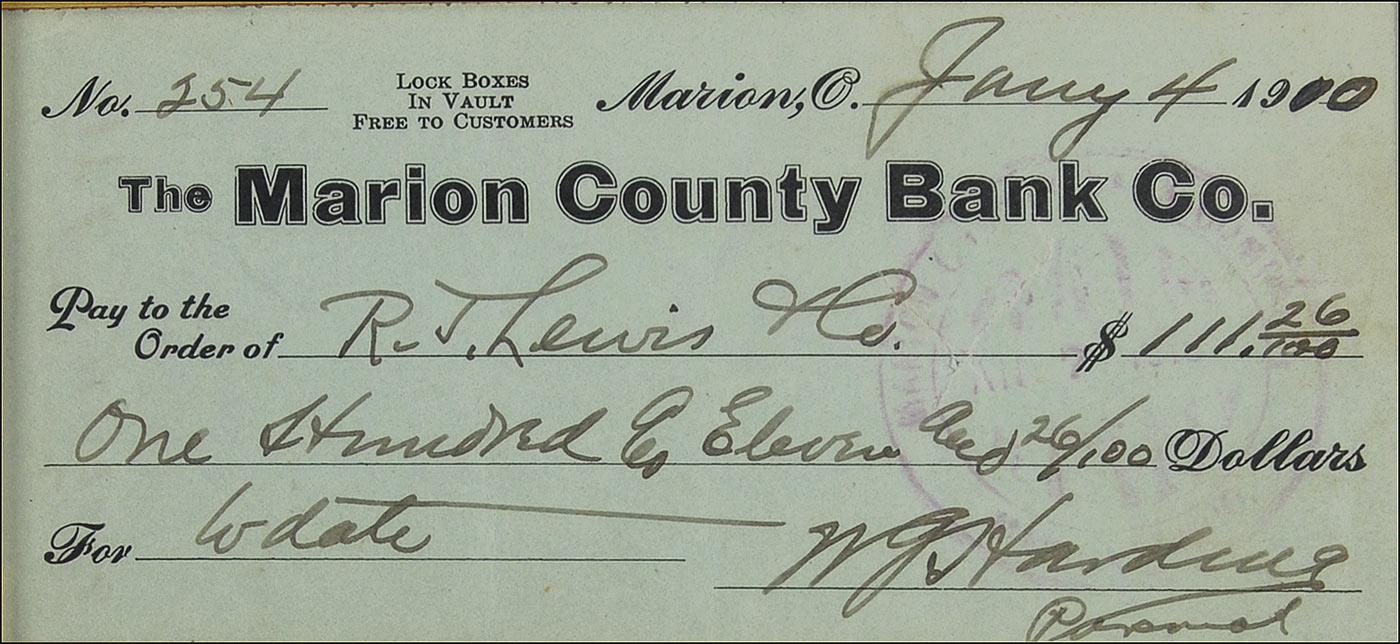 No. 254
LOCK BOXES
IN VAULT
FREE TO CUSTOMERS
Marion, O. Jany 4 1900
The Marion County Bank Co.
Pay to the
Order of R. J. Lewis & Co. $ 111.26/100
One Hundred & Eleven And 26/100 Dollars
For to date
WG Harding
Personal